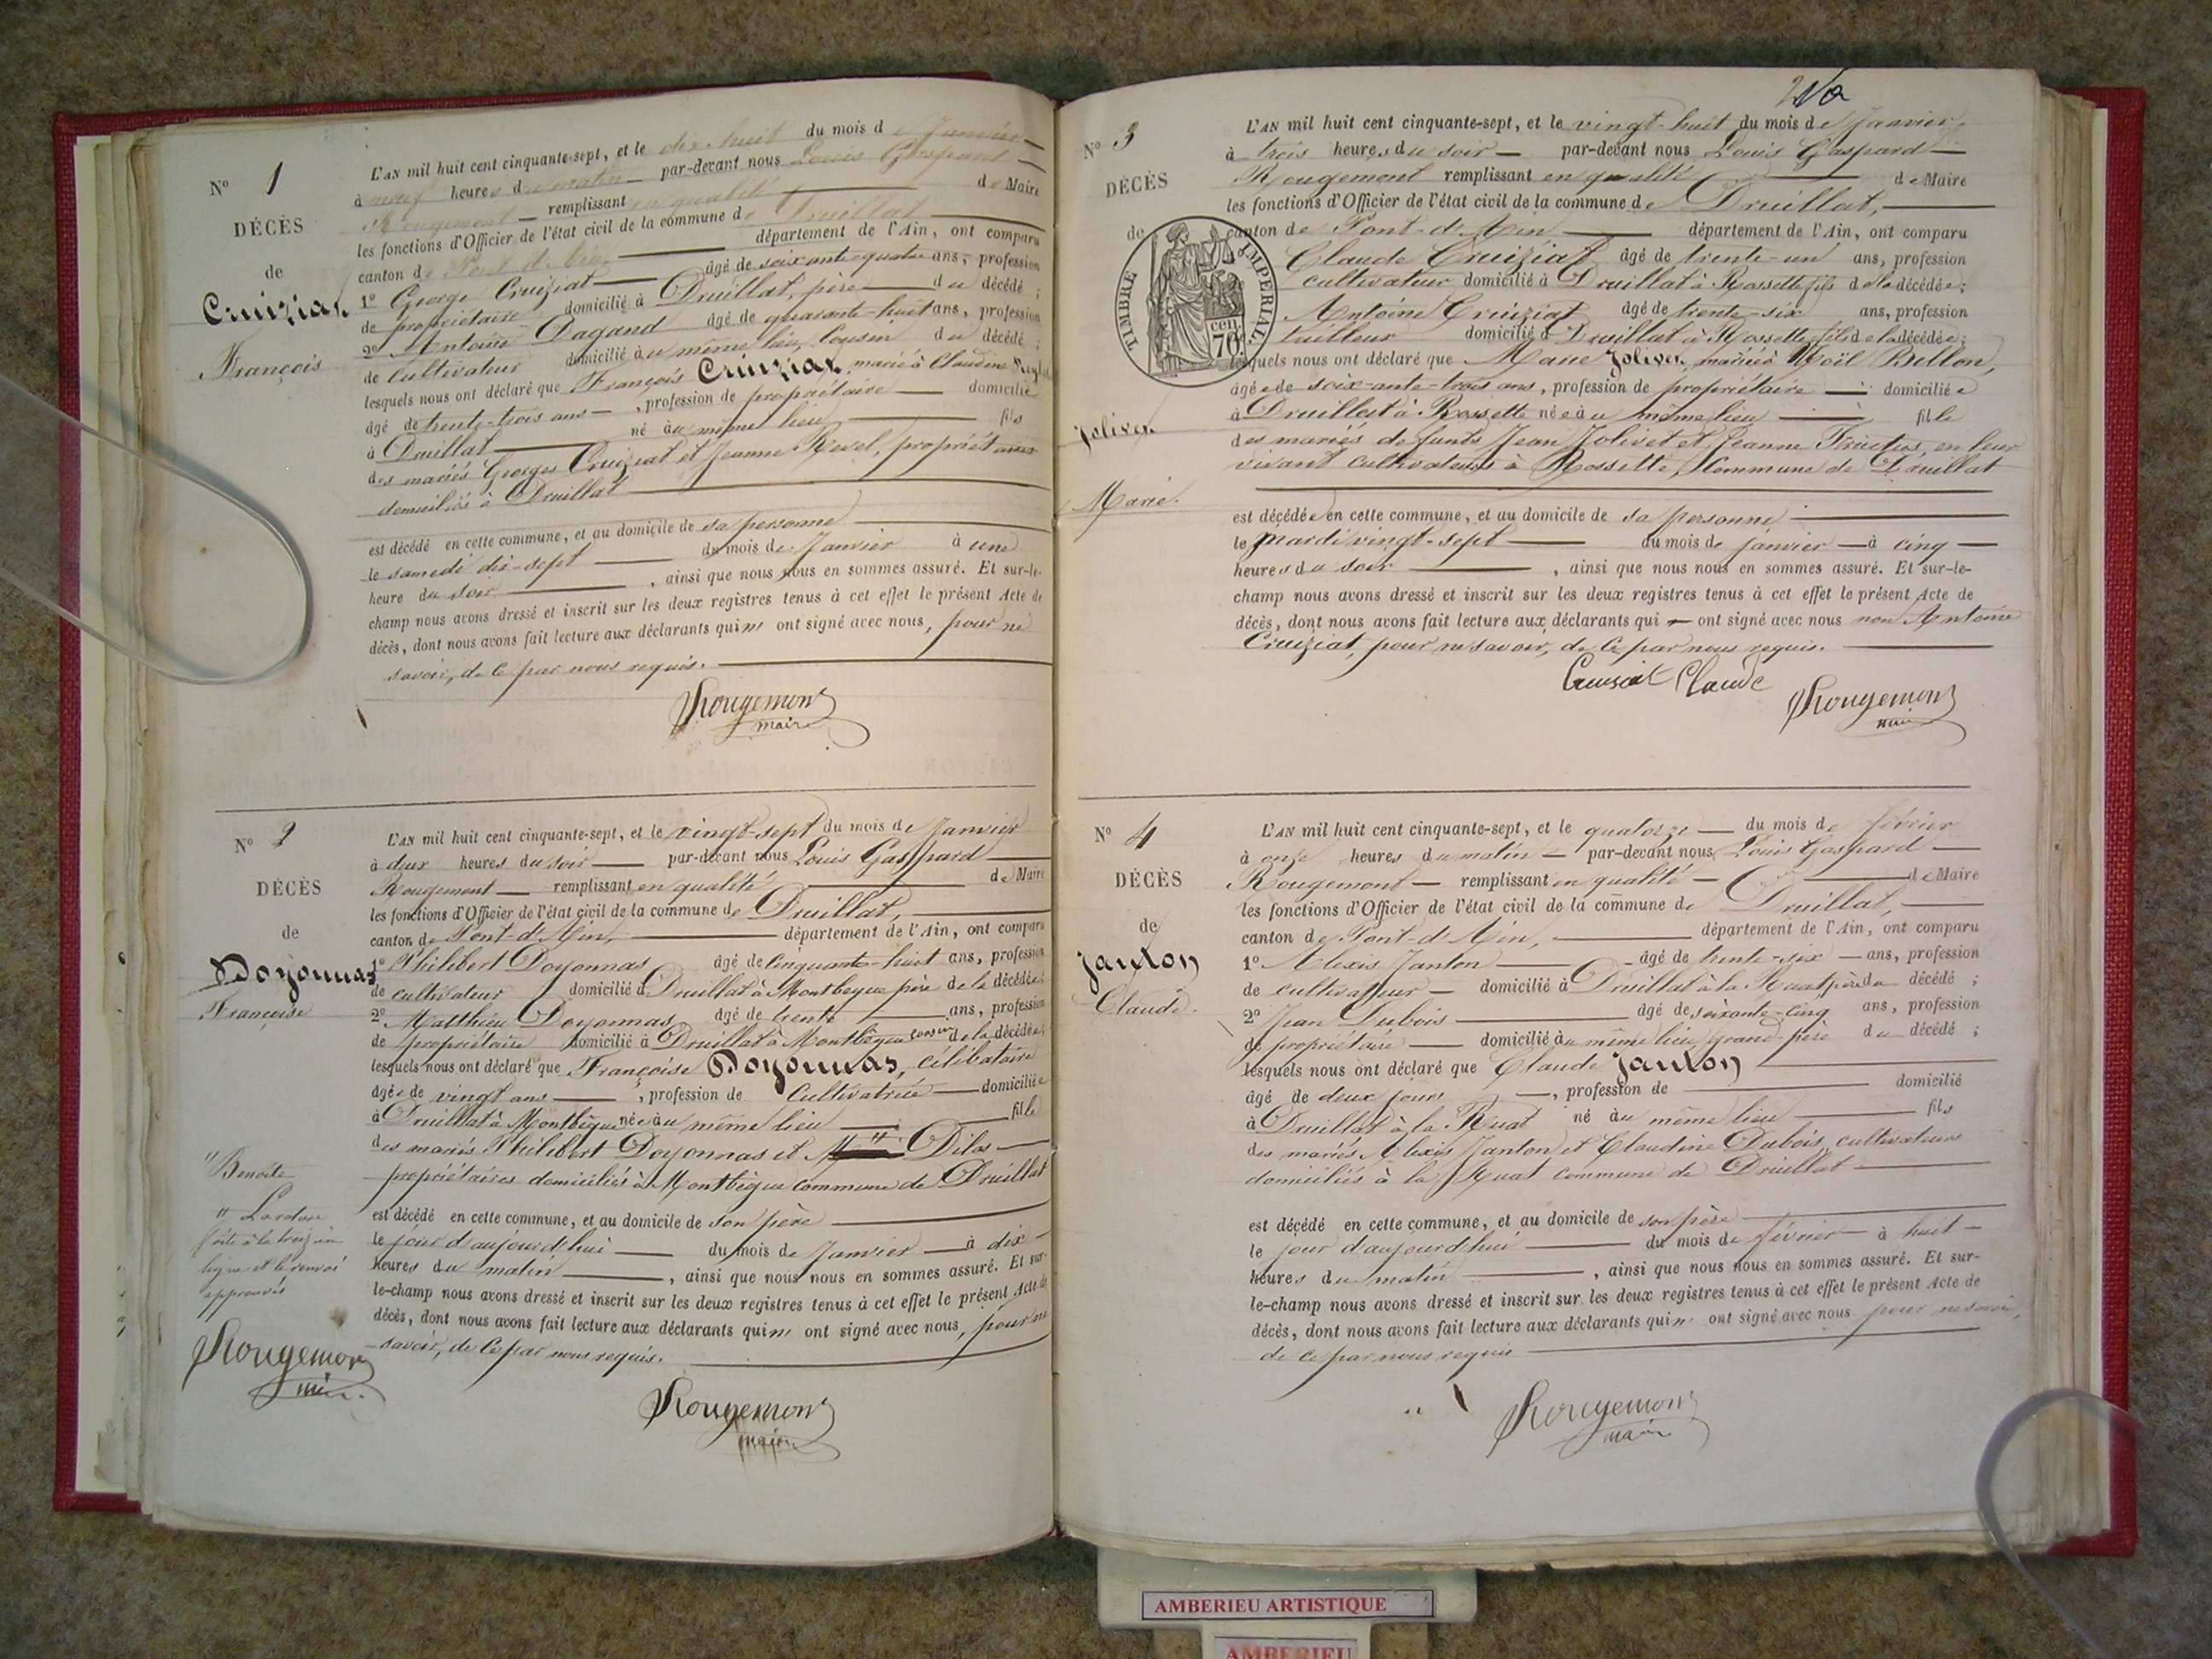 N° 1
DÉCÈS
de
Cruiziat
François
L'AN mil huit cent cinquante-sept, et le dix-huit du mois de Janvier
à neuf heures du matin par-devant nous Louis Gaspard
Rougemont remplissant en qualité de Maire
les fonctions d'Officier de l'état civil de la commune de Druillat
canton de Pont-d'Ain département de l'Ain, ont comparu
1° George Cruiziat âgé de soixante-quatre ans, profession
de propriétaire domicilié à Druillat, père du décédé ;
2° Antoine Dagand âgé de quarante-huit ans, profession
de cultivateur domicilié au même lieu, Cousin du décédé ;
lesquels nous ont déclaré que François Cruiziat, marié à Claudine
âgé de trente-trois ans, profession de propriétaire domicilié
à Druillat né au même lieu fils
des mariés Georges Cruiziat et Jeanne Revel, propriétaires
domiciliés à Druillat
est décédé en cette commune, et au domicile de sa personne
le samedi dix-sept du mois de Janvier à une
heure du soir, ainsi que nous nous en sommes assuré. Et sur-le-
champ nous avons dressé et inscrit sur les deux registres tenus à cet effet le présent Acte de
décès, dont nous avons fait lecture aux déclarants qui n' ont signé avec nous, pour ne
savoir, de ce par nous requis.
Rougemont
maire
N° 2
DÉCÈS
de
Doyonnas
Françoise
L'AN mil huit cent cinquante-sept, et le vingt-sept du mois de Janvier
à deux heures du soir par-devant nous Louis Gaspard
Rougemont remplissant en qualité de Maire
les fonctions d'Officier de l'état civil de la commune de Druillat,
canton de Pont-d'Ain, département de l'Ain, ont comparu
1° Philibert Doyonnas âgé de cinquante-huit ans, profession
de cultivateur domicilié à Druillat à Montbègue père de la décédée ;
2° Matthieu Doyonnas âgé de trente ans, profession
de propriétaire domicilié à Druillat à Montbègue cousin de la décédée ;
lesquels nous ont déclaré que Françoise Doyonnas, célibataire
âgée de vingt ans, profession de Cultivatrice domiciliée
à Druillat à Montbègue née au même lieu fille
des mariés Philibert Doyonnas et " Dilas
propriétaires domiciliés à Montbègue commune de Druillat
est décédé en cette commune, et au domicile de son père
le jour d'aujourd'hui du mois de Janvier à dix
heures du matin, ainsi que nous nous en sommes assuré. Et sur-
le-champ nous avons dressé et inscrit sur les deux registres tenus à cet effet le présent Acte de
décès, dont nous avons fait lecture aux déclarants qui n' ont signé avec nous, pour ne
savoir, de ce par nous requis.
Rougemont
maire
" Benoîte
" La rature
faite à la treizième
ligne et le renvoi
approuvés
Rougemont
N° 3
DÉCÈS
de
TIMBRE IMPERIAL
70 cen.
Jolivet
Marie.
L'AN mil huit cent cinquante-sept, et le vingt-huit du mois de Janvier
à trois heures du soir par-devant nous Louis Gaspard
Rougemont remplissant en qualité de Maire
les fonctions d'Officier de l'état civil de la commune de Druillat,
canton de Pont-d'Ain département de l'Ain, ont comparu
Claude Cruiziat âgé de trente-un ans, profession
cultivateur domicilié à Druillat à Rossette fils de la décédée ;
Antoine Cruiziat âgé de trente-six ans, profession
tailleur domicilié à Druillat à Rossette fils de la décédée ;
lesquels nous ont déclaré que Marie Jolivet, mariée à Noël Bellon,
âgée de soixante-trois ans, profession de propriétaire domiciliée
à Druillat à Rossette née au même lieu fille
des mariés defunts Jean Jolivet et Jeanne en leur
vivant cultivateurs à Rossette, Commune de Druillat
est décédée en cette commune, et au domicile de sa personne
le Mardi vingt-sept du mois de janvier à cinq
heures du soir, ainsi que nous nous en sommes assuré. Et sur-le-
champ nous avons dressé et inscrit sur les deux registres tenus à cet effet le présent Acte de
décès, dont nous avons fait lecture aux déclarants qui ont signé avec nous non Antoine
Cruiziat, pour ne savoir, de ce par nous requis.
Cruisiat Claude
Rougemont
maire
N° 4
DÉCÈS
de
Janton
Claude.
L'AN mil huit cent cinquante-sept, et le quatorze du mois de février
à onze heures du matin par-devant nous Louis Gaspard
Rougemont remplissant en qualité de Maire
les fonctions d'Officier de l'état civil de la commune de Druillat,
canton de Pont-d'Ain, département de l'Ain, ont comparu
1° Alexis Janton âgé de trente-six ans, profession
de cultivateur domicilié à Druillat à la Ruat père du décédé ;
2° Jean Dubois âgé de soixante-cinq ans, profession
de propriétaire domicilié au même lieu, Grand-père du décédé ;
lesquels nous ont déclaré que Claude Janton
âgé de deux jours, profession de domicilié
à Druillat à la Ruat né au même lieu fils
des mariés Alexis Janton et Claudine Dubois, cultivateurs
domiciliés à la Ruat commune de Druillat
est décédé en cette commune, et au domicile de son père
le jour d'aujourd'hui du mois de février à huit
heures du matin, ainsi que nous nous en sommes assuré. Et sur-
le-champ nous avons dressé et inscrit sur les deux registres tenus à cet effet le présent Acte de
décès, dont nous avons fait lecture aux déclarants qui n' ont signé avec nous pour ne savoir,
de ce par nous requis
Rougemont
maire
AMBERIEU ARTISTIQUE
AMBERIEU